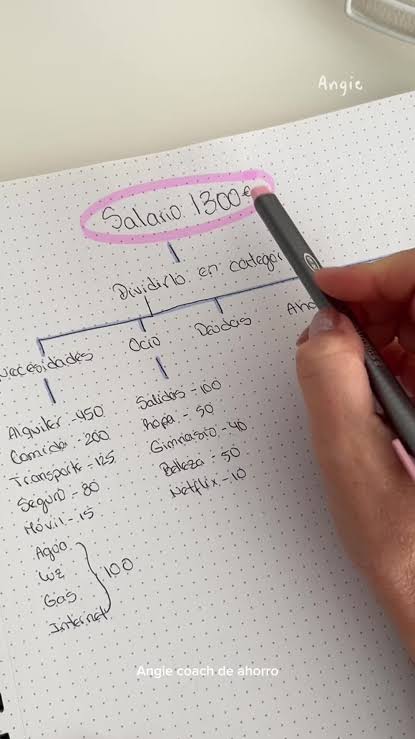 Angie
Salario 1300€
Dividirlo en categor
Necesidades
Ocio
Deudas
Aho
Alquiler - 450
Comida - 200
Transporte - 125
Seguro - 80
Móvil - 15
Agua
Luz
Gas
Internet
100
Salidas - 100
Ropa - 50
Gimnasio - 40
Belleza - 50
Netflix - 10
Angie coach de ahorro